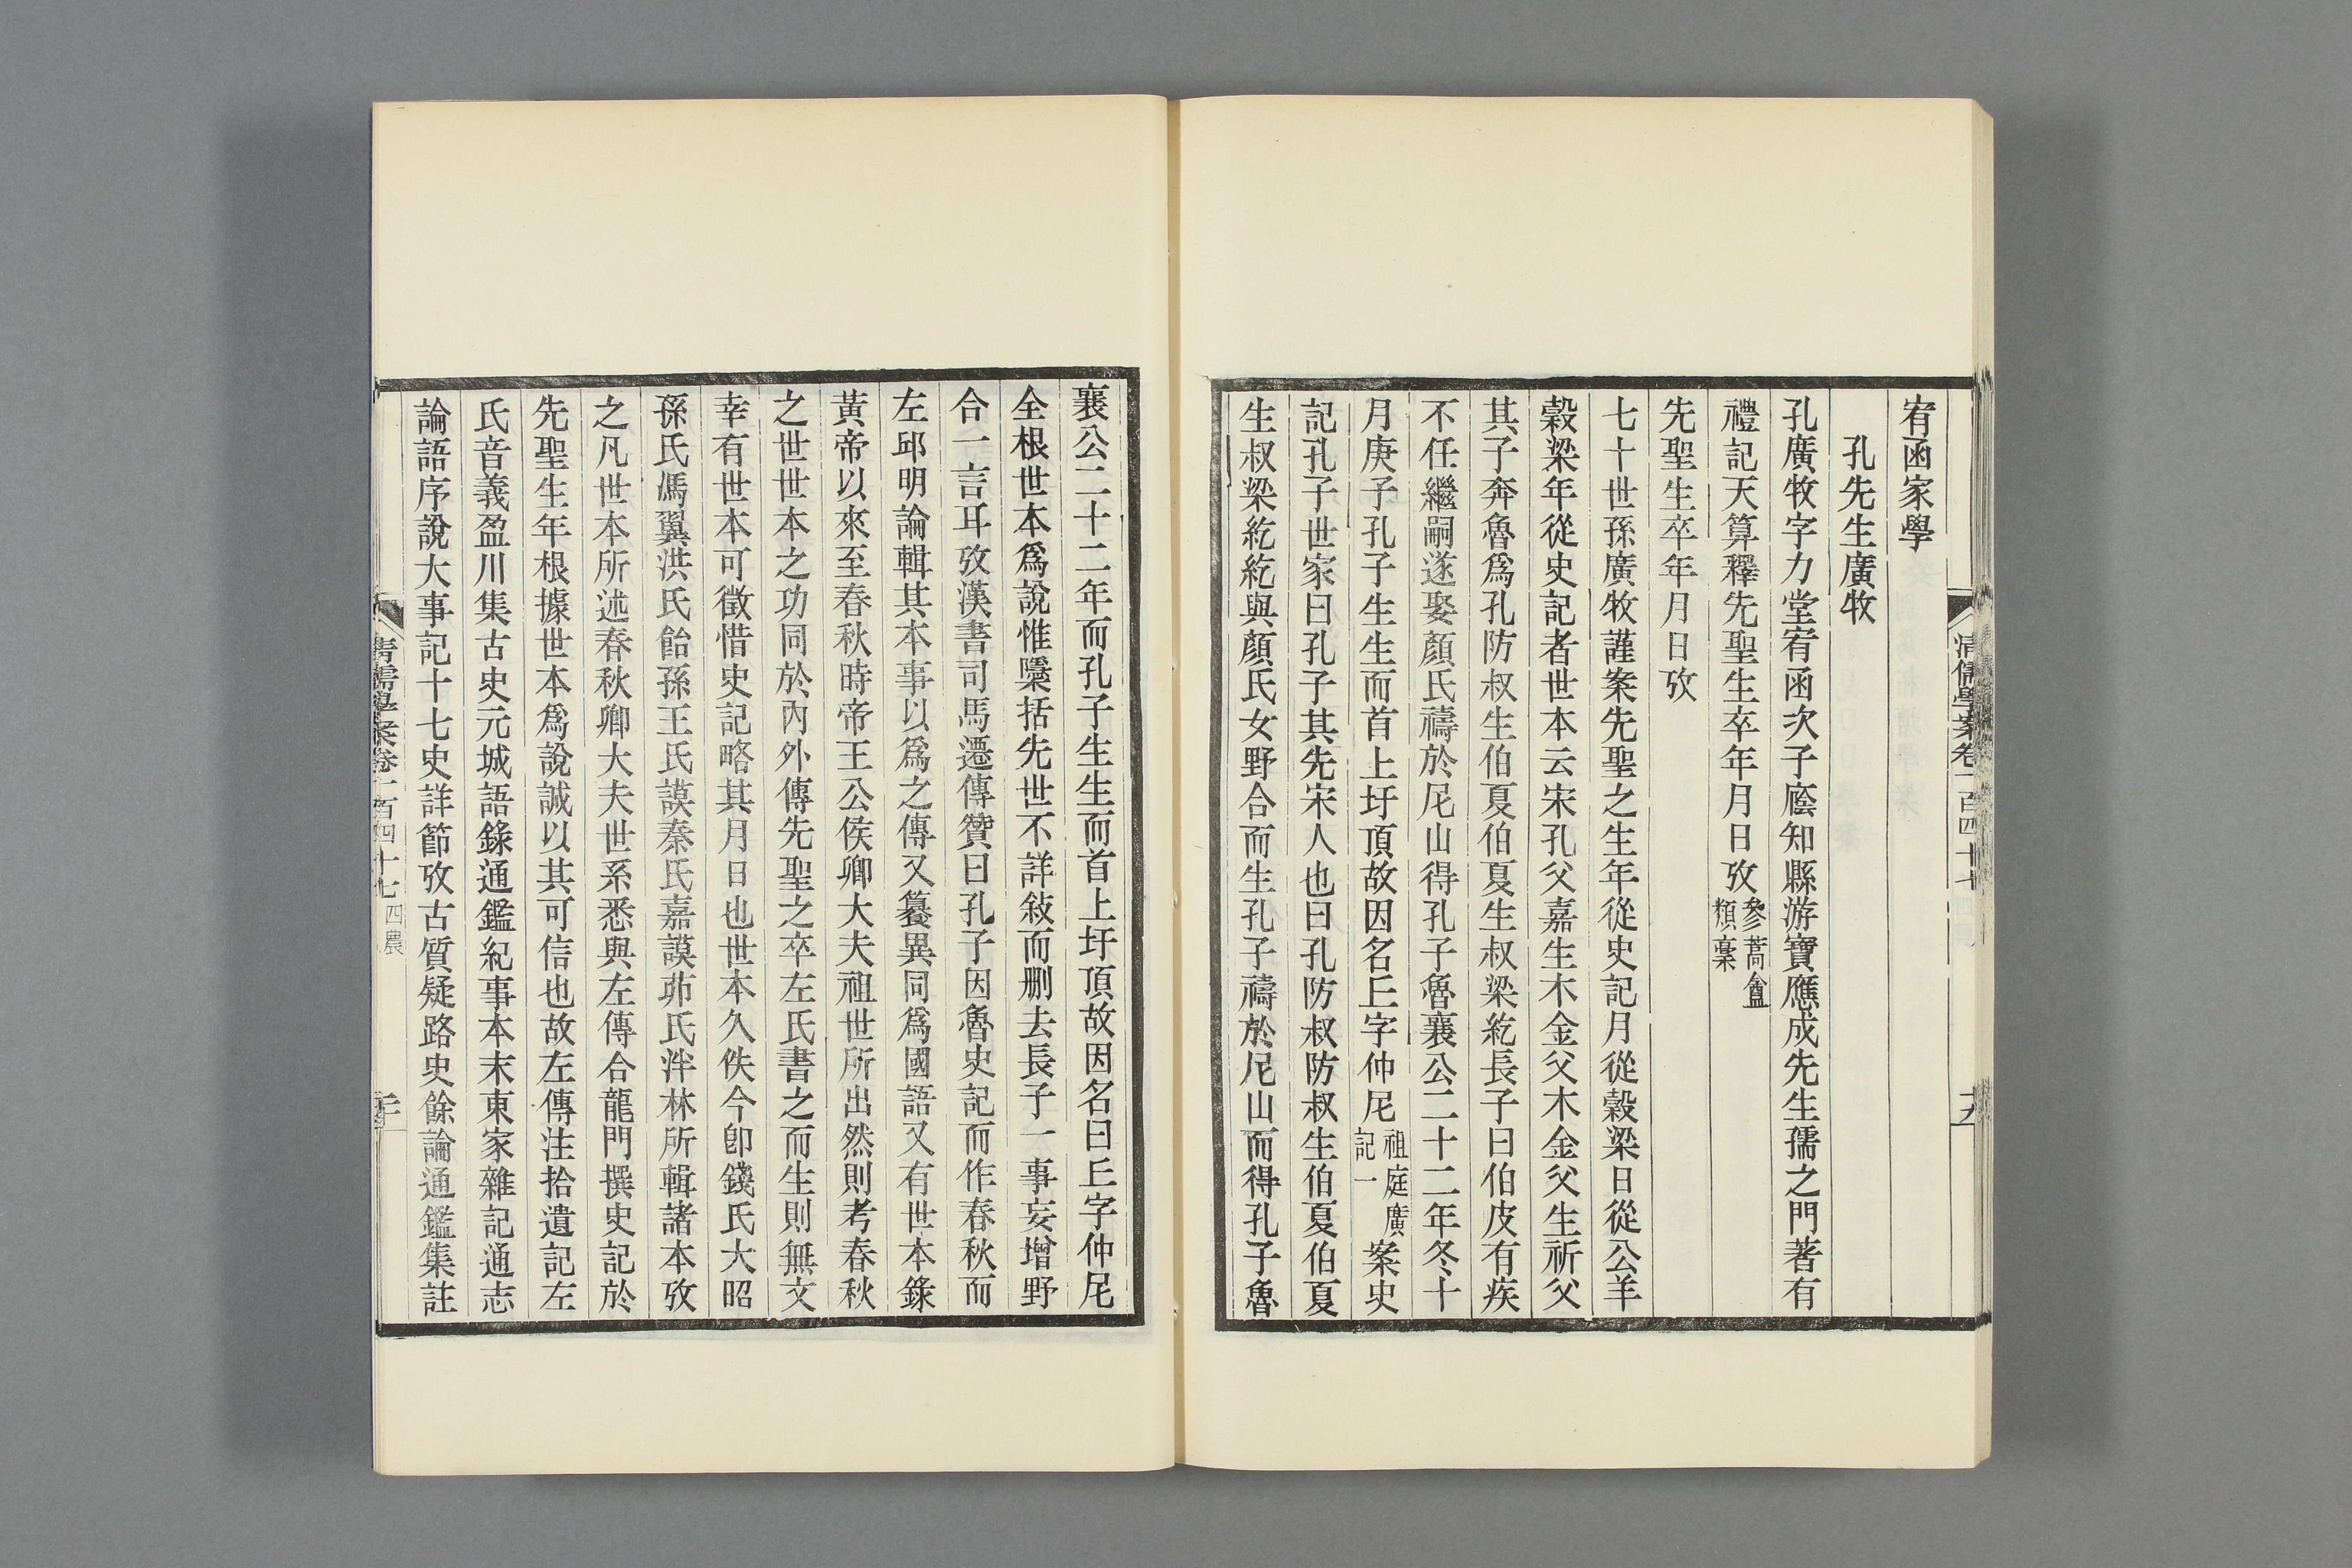 宥函家學
孔先生廣牧
孔廣牧字力堂宥函次子廕知縣游寶應成先生孺之門著有
禮記天算釋先聖生卒年月日攷參蒿盦
類稾
先聖生卒年月日攷
七十世孫廣牧謹案先聖之生年從史記月從穀梁日從公羊
穀梁年從史記者世本云宋孔父嘉生木金父木金父生祈父
其子奔魯爲孔防叔生伯夏伯夏生叔梁紇長子曰伯皮有疾
不任繼嗣遂娶顏氏禱於尼山得孔子魯襄公二十二年冬十
月庚子孔子生生而首上圩頂故因名丘字仲尼祖庭廣
記一案史
記孔子世家曰孔子其先宋人也曰孔防叔防叔生伯夏伯夏
生叔梁紇紇與顏氏女野合而生孔子禱於尼山而得孔子魯
清儒學案卷一百四十七
十九
襄公二十二年而孔子生生而首上圩頂故因名曰丘字仲尼
全根世本爲說惟檃括先世不詳敍而删去長子一事妄增野
合一言耳攷漢書司馬遷傳贊曰孔子因魯史記而作春秋而
左邱明論輯其本事以爲之傳又纂異同爲國語又有世本錄
黃帝以來至春秋時帝王公侯卿大夫祖世所出然則考春秋
之世世本之功同於內外傳先聖之卒左氏書之而生則無文
幸有世本可徵惜史記略其月日也世本久佚今卽錢氏大昭
孫氏馮翼洪氏飴孫王氏謨秦氏嘉謨茆氏泮林所輯諸本攷
之凡世本所述春秋卿大夫世系悉與左傳合龍門撰史記於
先聖生年根據世本爲說誠以其可信也故左傳注拾遺記左
氏音義盈川集古史元城語錄通鑑紀事本末東家雜記通志
論語序說大事記十七史詳節攷古質疑路史餘論通鑑集註
清儒學案卷一百四十七 四農